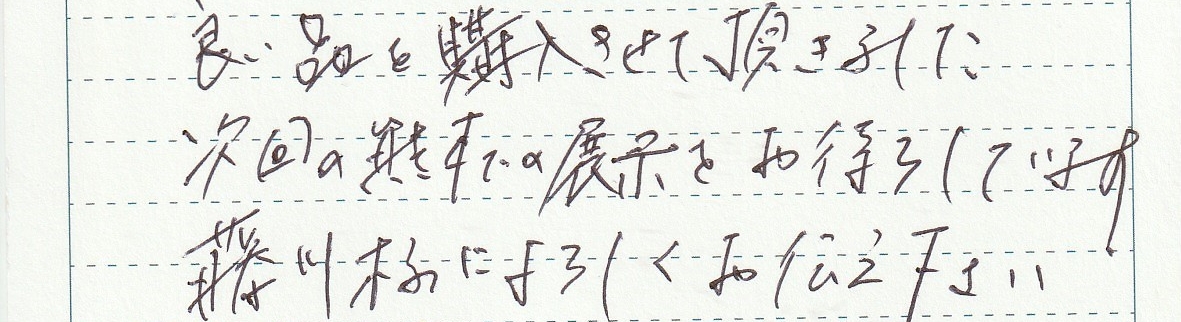 良い品を購入させて頂きました
次回の 車での展示をお待ちしています
藤川様によろしくお伝え下さい